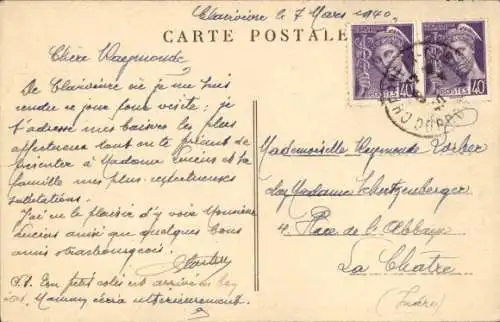 Clairvivre le 7 Mars 1940.
CARTE POSTALE
Chère Raymonde
De Clairvivre où je me suis
rendu ce jour pour visite ; je
t'adresse mes baisers les plus
affectueux tout en te priant de
présenter à Madame Lucius et la
famille mes plus respectueuses
salutations.
J'ai eu le plaisir d'y voir Monsieur
Lucius ainsi que quelques bons
amis strasbourgeois.
P.S. Ton petit colis est arrivé
Maman écrira ultérieurement.
POSTES 40
POSTES 40
Mademoiselle Reymonde
Madame Schertzenberger
4 Place de l'Abbaye
La Châtre
(Indre)